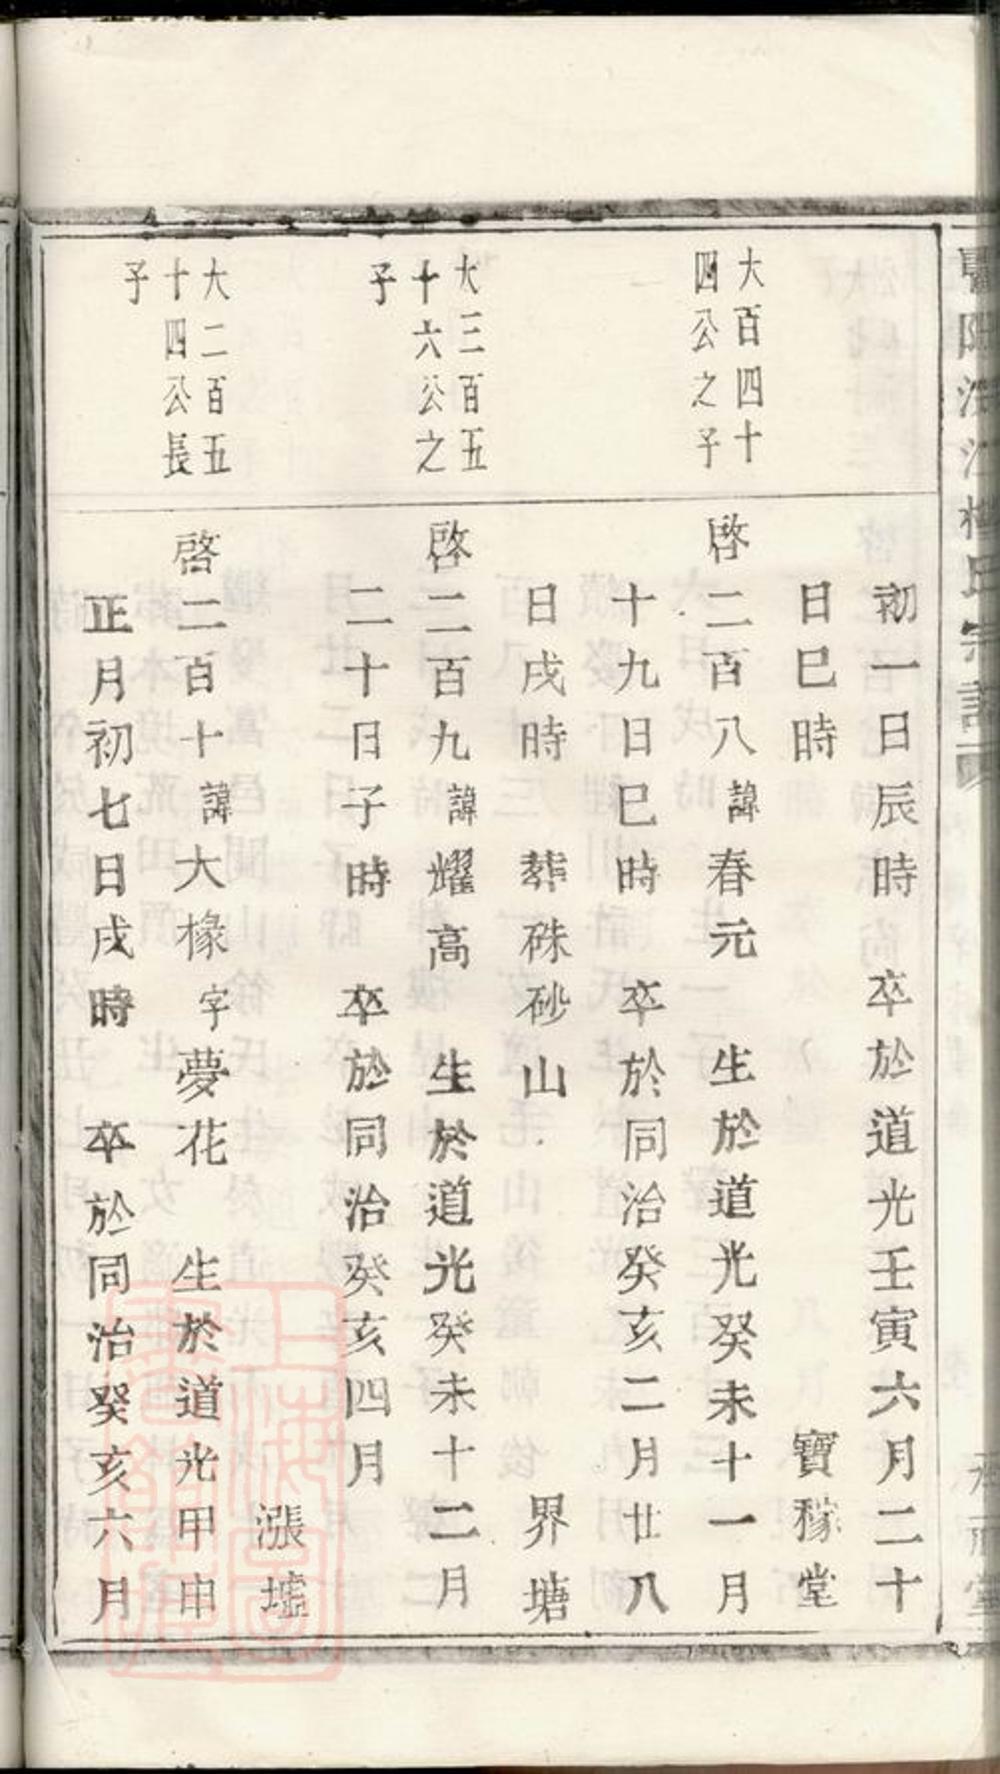 初一日辰時 卒於道光壬寅六月二十
日巳時 寶稼堂
大百四十
四公之子
啓二百八諱春元 生於道光癸未十一月
十九日巳時 卒於同治癸亥二月廿八
日戌時 葬硃砂山 界塘
大三百五
十六公之
子
啓二百九諱耀高 生於道光癸未十二月
二十日子時 卒於同治癸亥四月
漲墟
大二百五
十四公長
子
啓二百十諱大椽字夢花 生於道光甲申
正月初七日戌時 卒於同治癸亥六月
上海圖書館藏